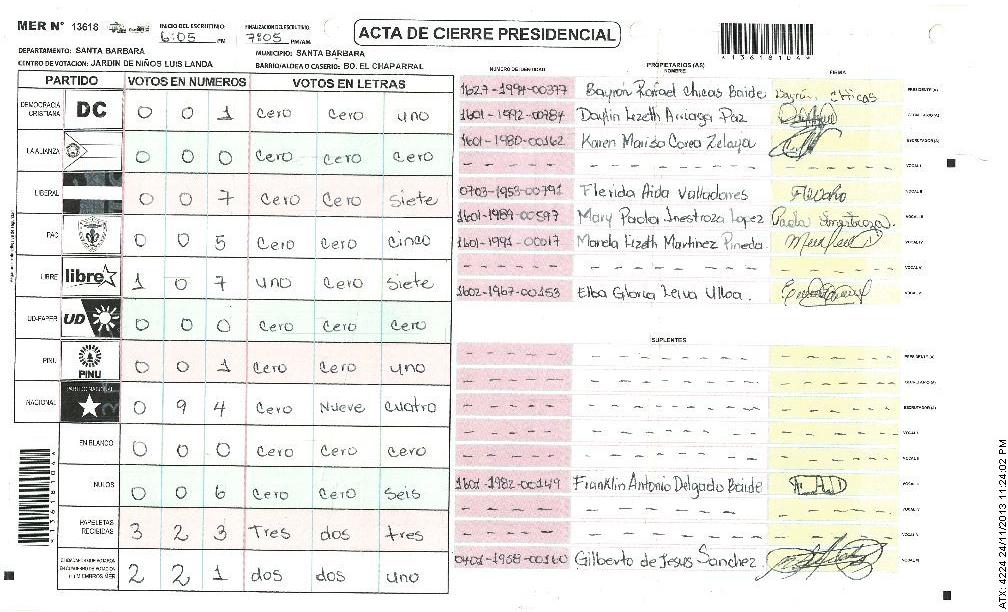 MER N° 13618 INICIO DEL ESCRUTINIO: 6:05 PM FINALIZACION DEL ESCRUTINIO: 7:05 PM/AM
ACTA DE CIERRE PRESIDENCIAL
DEPARTAMENTO: SANTA BARBARA MUNICIPIO: SANTA BARBARA
CENTRO DE VOTACION: JARDIN DE NIÑOS LUIS LANDA BARRIO/ALDEA O CASERIO: BO. EL CHAPARRAL
PARTIDO VOTOS EN NUMEROS VOTOS EN LETRAS
DEMOCRACIA CRISTIANA DC 0 0 1 cero cero uno
LA ALIANZA 0 0 0 cero cero cero
LIBERAL 0 0 7 cero cero siete
PAC 0 0 5 cero cero cinco
LIBRE libre 1 0 7 uno cero siete
UD-FAPER UD 0 0 0 cero cero cero
PINU PINU 0 0 1 cero cero uno
NACIONAL PARTIDO NACIONAL 0 9 4 cero Nueve cuatro
EN BLANCO 0 0 0 cero cero cero
NULOS 0 0 6 cero cero seis
PAPELETAS RECIBIDAS 3 2 3 Tres dos tres
2 2 1 dos dos uno
NUMERO DE IDENTIDAD PROPIETARIOS (AS) NOMBRE FIRMA
1627-1994-00377 Bayron Rafael Chicas Baide Bayron Chicas PRESIDENTE (A)
1601-1992-00784 Daylin Lizeth Arriaga Paz
1601-1980-00162 Karen Mariso Corea Zelaya ESCRUTADOR (A)
0703-1953-00791 Flerida Aida Valladares
1601-1989-00597 Mary Paola Inestroza Lopez Paola Inestroza
1601-1991-00017 Mariela Lizeth Martinez Pineda
1602-1967-00153 Elba Gloria Leiva Ulloa
SUPLENTES
PRESIDENTE (A)
ESCRUTADOR (A)
1601-1982-00149 Franklin Antonio Delgado Baide F.A.D
0401-1968-00160 Gilberto de Jesus Sanchez
13618104
ATX: 4224 24/11/2013 11:24:02 PM